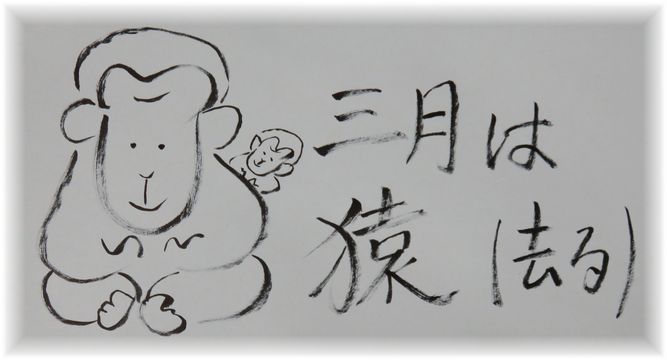 三月は
猿(去る)